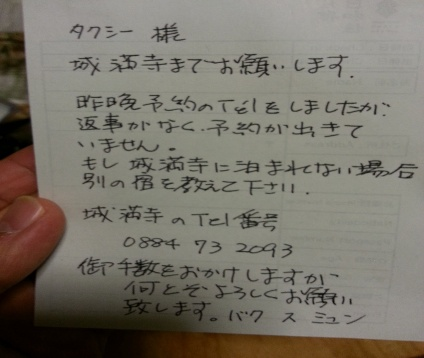 タクシー 様
城満寺までお願いします.
昨晩予約のTelをしましたが.
返事がなく、予約が出きて
いません。
もし城満寺に泊まれない場合
別の宿を教えて下さい.
城満寺のTel番号
0884 73 2093
御手数をおかけしますが、
何とぞよろしくお願い
致します。パク スミョン